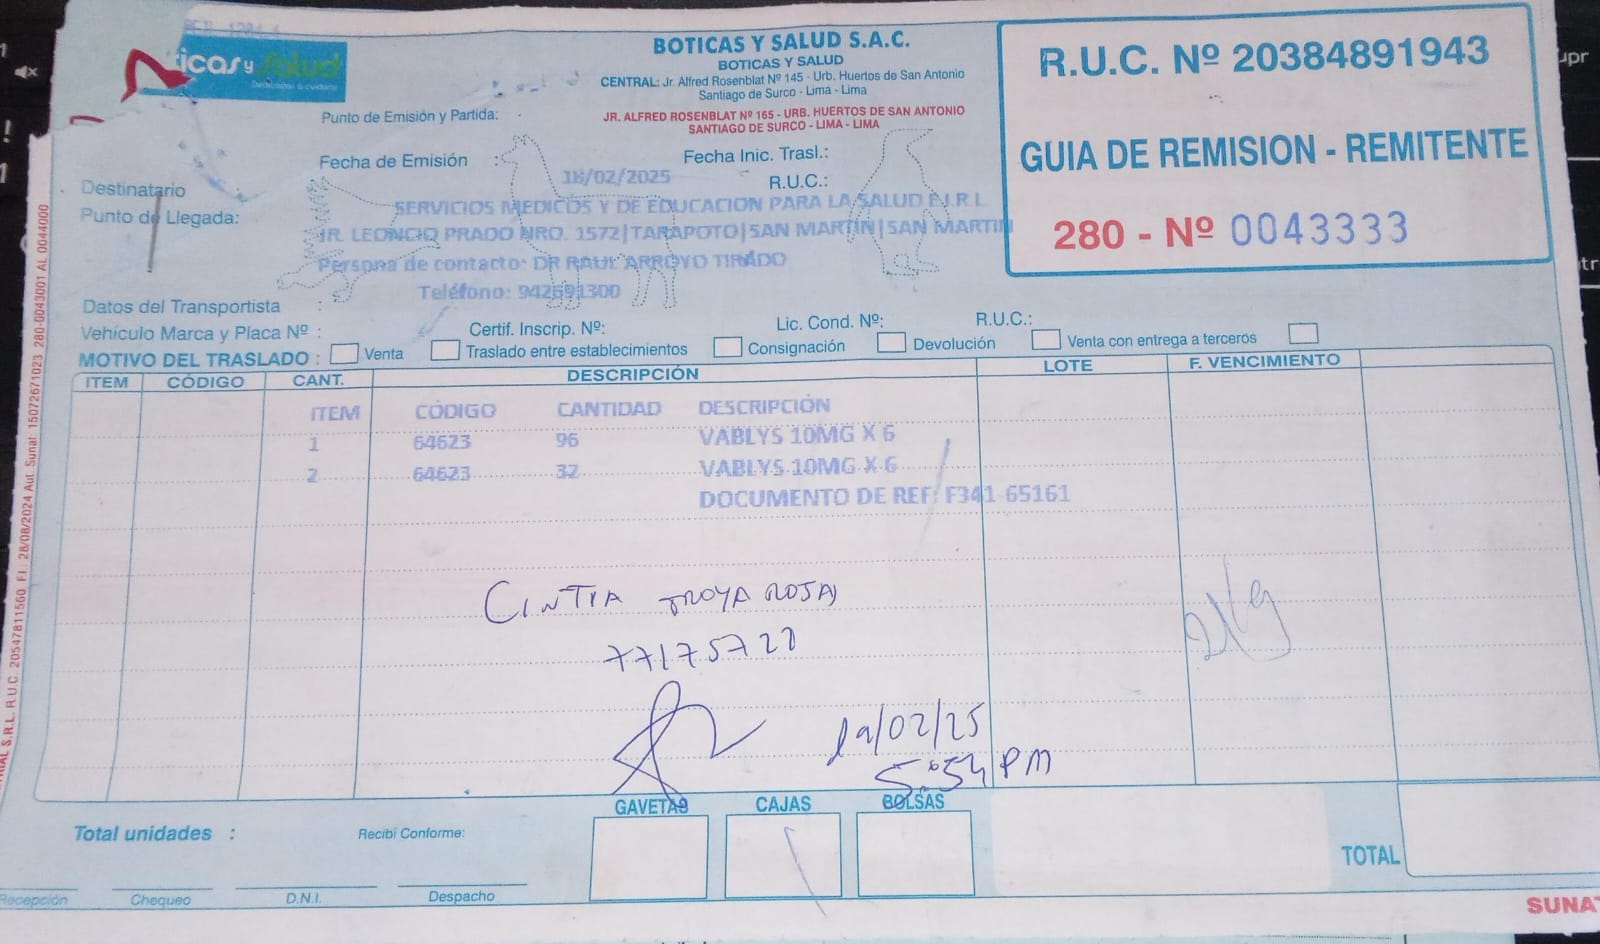 icas y Salud
Dedicados a cuidarte
BOTICAS Y SALUD S.A.C.
BOTICAS Y SALUD
CENTRAL: Jr. Alfred Rosenblat Nº 145 - Urb. Huertos de San Antonio
Santiago de Surco - Lima - Lima
Punto de Emisión y Partida:
JR. ALFRED ROSENBLAT Nº 165 - URB. HUERTOS DE SAN ANTONIO
SANTIAGO DE SURCO - LIMA - LIMA
R.U.C. Nº 20384891943
GUIA DE REMISION - REMITENTE
280 - Nº 0043333
Fecha de Emisión : 18/02/2025 Fecha Inic. Trasl.:
Destinatario R.U.C.:
SERVICIOS MEDICOS Y DE EDUCACION PARA LA SALUD E.I.R.L
Punto de Llegada: JR. LEONCIO PRADO NRO. 1572|TARAPOTO|SAN MARTIN|SAN MARTIN
Persona de contacto: DR RAUL ARROYO TIRADO
Teléfono: 942691300
Datos del Transportista :
Vehículo Marca y Placa Nº : Certif. Inscrip. Nº: Lic. Cond. Nº: R.U.C.:
MOTIVO DEL TRASLADO : Venta Traslado entre establecimientos Consignación Devolución Venta con entrega a terceros
ITEM CÓDIGO CANT. DESCRIPCIÓN LOTE F. VENCIMIENTO
ITEM CÓDIGO CANTIDAD DESCRIPCIÓN
1 64623 96 VABLYS 10MG X 6
2 64623 32 VABLYS 10MG X 6
DOCUMENTO DE REF: F341-65161
CINTIA TROYA ROJAS
77175728
19/02/25
5:54 PM
GAVETAS CAJAS BOLSAS
Total unidades : Recibí Conforme:
TOTAL
Recepción Chequeo D.N.I. Despacho
SUNAT
S.R.L. R.U.C. 20547811560 F.I. 28/08/2024 Aut. Sunat: 15072671023 280-0043001 AL 0044000